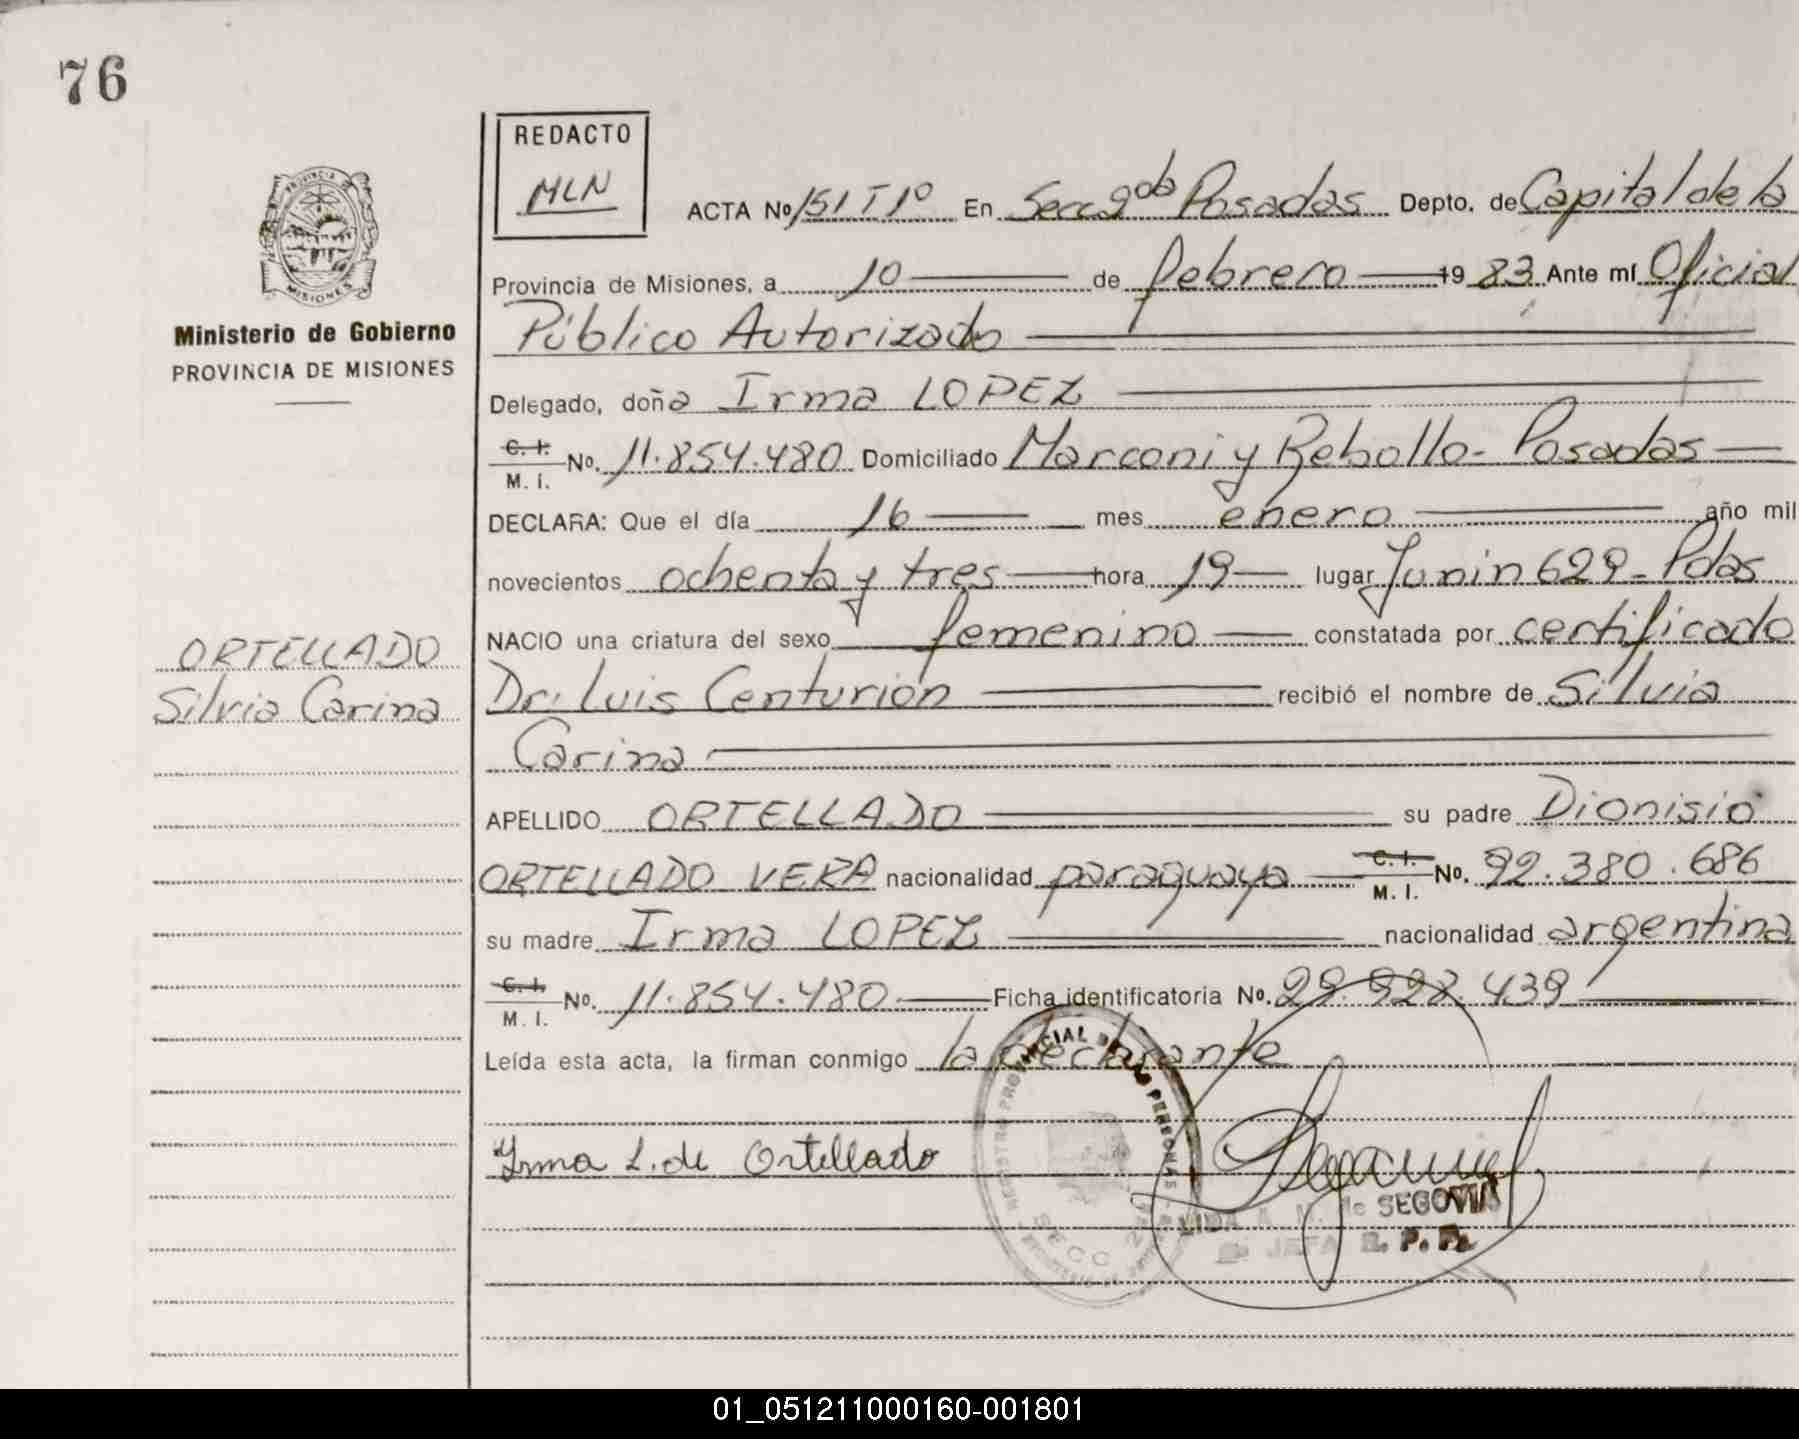 76
REDACTO
MLN
PROVINCIA DE
MISIONES
Ministerio de Gobierno
PROVINCIA DE MISIONES
ACTA No 151 T 1º En Secc 2da Posadas Depto. de Capital de la
Provincia de Misiones, a 10 de febrero 1983 Ante mí Oficial
Público Autorizado
Delegado, doña Irma LOPEZ
C. I. M. I. No. 11.854.480 Domiciliado Marconi y Rebollo - Posadas
DECLARA: Que el día 16 mes enero año mil
novecientos ochenta y tres hora 19 lugar Junin 629 - Pdas
NACIO una criatura del sexo femenino constatada por certificado
Dr. Luis Centurión recibió el nombre de Silvia
Carina
ORTELLADO
Silvia Carina
APELLIDO ORTELLADO su padre Dionisio
ORTELLADO VERA nacionalidad paraguaya C. I. M. I. No. 92.380.686
su madre Irma LOPEZ nacionalidad argentina
C. I. M. I. No. 11.854.480 Ficha identificatoria No. 29.928.439
Leída esta acta, la firman conmigo la declarante
Irma L. de Ortellado
REGISTRO PROVINCIAL DE LAS PERSONAS
SECC 2
LIDA A. M. de SEGOVIA
JEFA R. P. P.
01_051211000160-001801